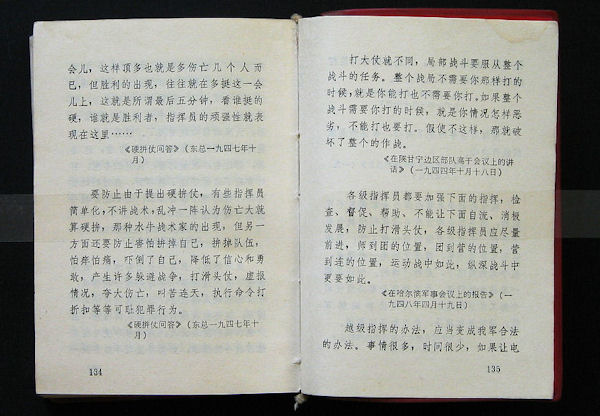 会儿，这样顶多也就是多伤亡几个人而
已，但胜利的出现，往往就在多挺这一会
儿上，这就是所谓最后五分钟，看谁挺的
硬，谁就是胜利者，指挥员的顽强性就表
现在这里……
《硬拼仗问答》（东总一九四七年十
月）
要防止由于提出硬拼仗，有些指挥员
简单化，不讲战术，乱冲一阵认为伤亡大就
算硬拼，那种水牛战术家的出现，但另一
方面还要防止害怕拼掉自己，拼掉队伍，
怕疼怕痛，吓倒了自己，降低了信心和勇
敢，产生许多躲避战争，打滑头仗，虚报
情况，夸大伤亡，叫苦连天，执行命令打
折扣等等可耻犯罪行为。
《硬拼仗问答》（东总一九四七年十
月）
134
打大仗就不同，局部战斗要服从整个
战斗的任务。整个战局不需要你那样打的
时候，就是你能打也不需要你打。如果整个
战斗需要你打的时候，就是你情况怎样恶
劣，不能打也要打。假使不这样，那就破
坏了整个的作战。
《在陕甘宁边区部队高干会议上的讲
话》（一九四四年十月十八日）
各级指挥员都要加强下面的指挥，检
查、督促、帮助、不能让下面自流、消极
发展，防止打滑头仗，各级指挥员应尽量
前进，师到团的位置，团到营的位置，营
到连的位置，运动战中如此，纵深战斗中
更要如此。
《在哈尔滨军事会议上的报告》（一
九四八年四月十九日）
越级指挥的办法，应当变成我军合法
的办法。事情很多，时间很少，如果让电
135